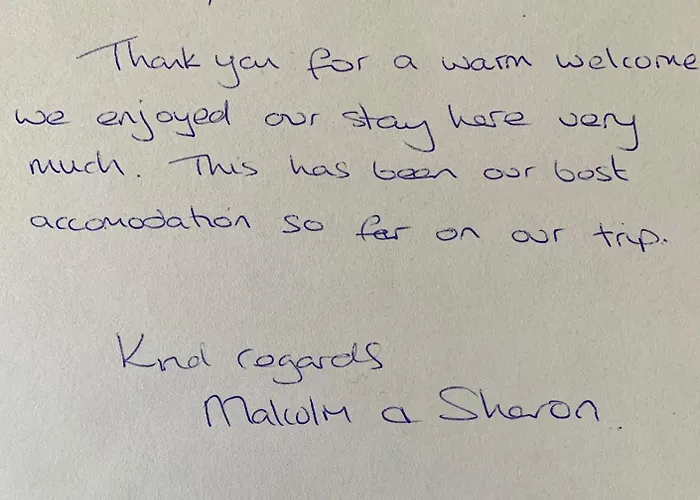 Thank you for a warm welcome
we enjoyed our stay here very
much. This has been our best
accomodation so far on our trip.
Kind regards
Malcolm & Sharon.